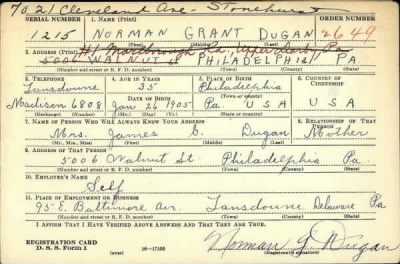 7021 Cleveland Ave - Stonehurst
SERIAL NUMBER 1. NAME (Print) ORDER NUMBER
1215 NORMAN GRANT DUGAN 2649
(First) (Middle) (Last)
2. ADDRESS (Print) #1 Marlborough Rd., Upper Darby Pa
5006 WALNUT St PHILADELPHIA PA
(Number and street or R. F. D. number) (Town) (County) (State)
3. TELEPHONE 4. AGE IN YEARS 5. PLACE OF BIRTH 6. COUNTRY OF CITIZENSHIP
Lansdowne 35 Philadelphia
DATE OF BIRTH
Madison 6808 Jan 26 1905 Pa USA USA
(Exchange) (Number) (Mo.) (Day) (Yr.) (State or country)
7. NAME OF PERSON WHO WILL ALWAYS KNOW YOUR ADDRESS 8. RELATIONSHIP OF THAT PERSON
Mrs. James Dugan Mother
(Mr., Mrs., Miss) (First) (Middle) (Last)
9. ADDRESS OF THAT PERSON
5006 Walnut St. Philadelphia Pa.
(Number and street or R. F. D. number) (Town) (County) (State)
10. EMPLOYER'S NAME
Self
11. PLACE OF EMPLOYMENT OR BUSINESS
95 E. Baltimore Ave. Lansdowne Delaware Pa
(Number and street or R. F. D. number) (Town) (County) (State)
I AFFIRM THAT I HAVE VERIFIED ABOVE ANSWERS AND THAT THEY ARE TRUE.
REGISTRATION CARD
D. S. S. Form 1 (over) 16-17105 Norman G. Dugan
(Registrant's signature)